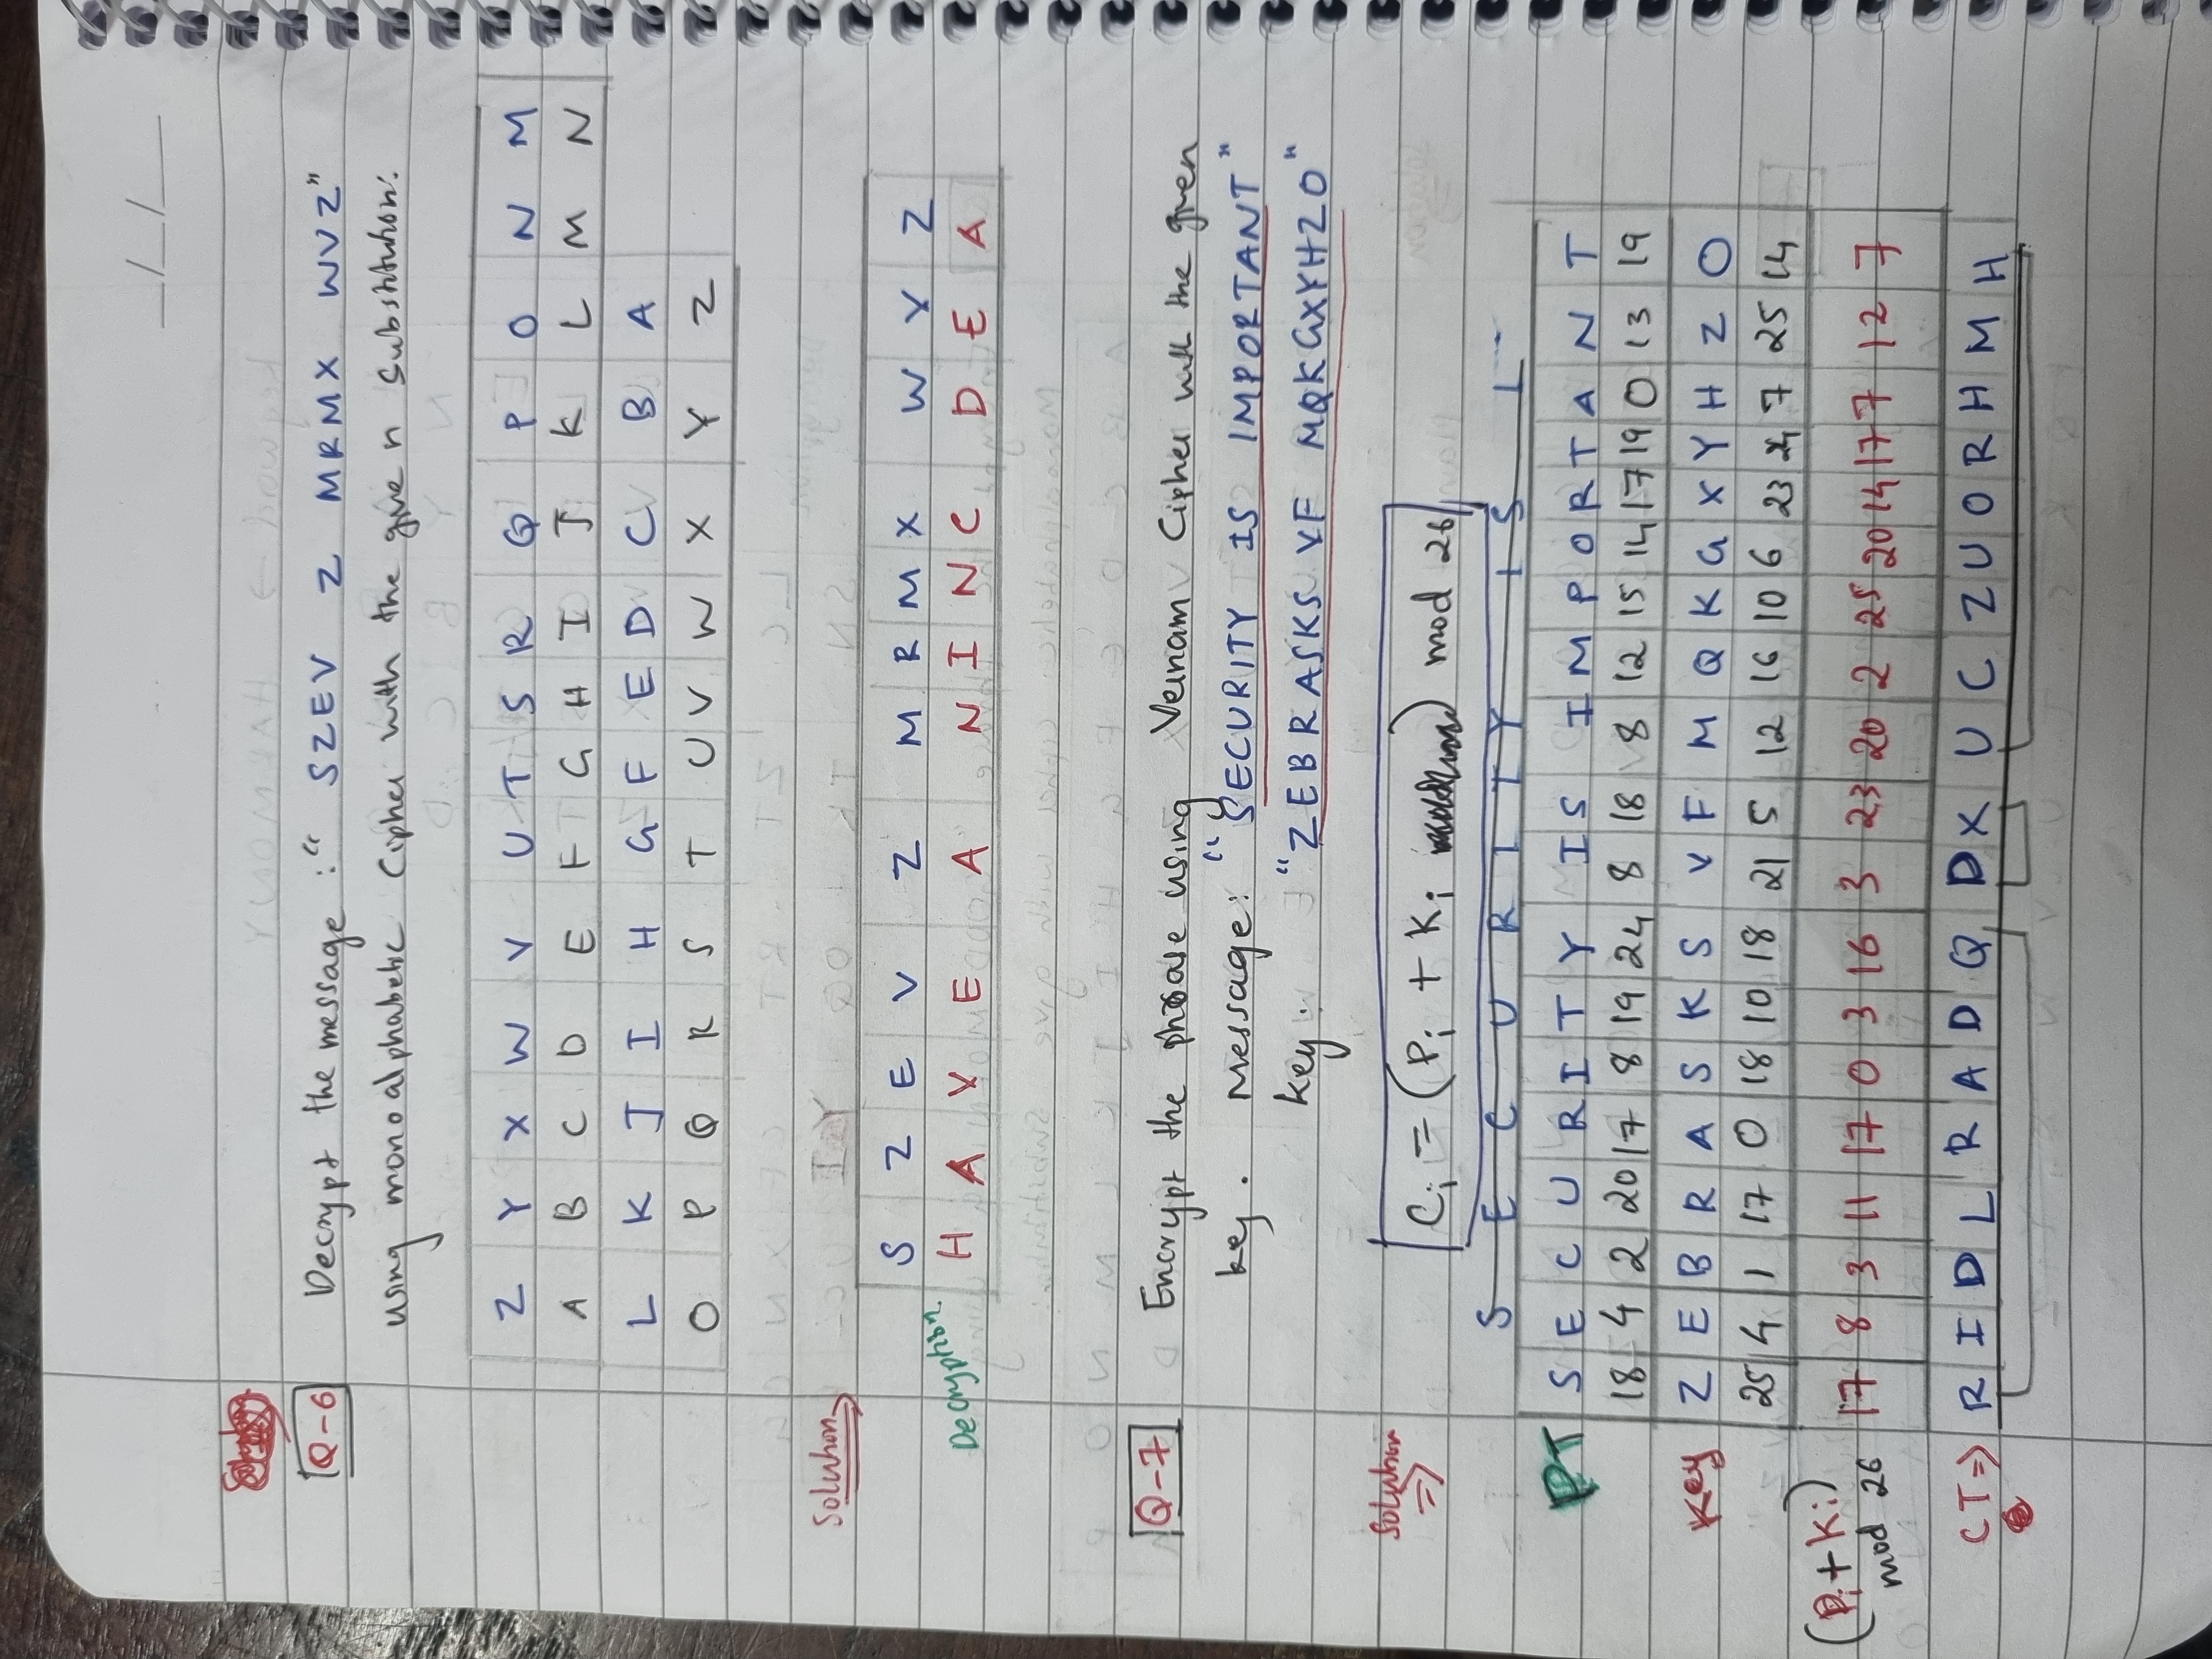 _/_/_
Q-6 Decrypt the message :" SZEV Z MRMX WVZ"
using monoalphabetic Cipher with the given Substitution:
Z Y X W V U T S R Q P O N M
A B C D E F G H I J K L M N
L K J I H G F E D C B A
O P Q R S T U V W X Y Z
Solution
S Z E V Z M R M X W V Z
Decryption H A V E A N I N C D E A
Q-7 Encrypt the phrase using Vernam Cipher with the given
key. Message: "SECURITY IS IMPORTANT"
key: "ZEBRASKS VF MQKGXYHZO"
Solution ⇒ Ci = (Pi + Ki) mod 26
S E C U R I T Y I S I
PT S E C U R I T Y I S I M P O R T A N T
18 4 2 20 17 8 19 24 8 18 8 12 15 14 17 19 0 13 19
Key Z E B R A S K S V F M Q K G X Y H Z O
25 4 1 17 0 18 10 18 21 5 12 16 10 6 23 24 7 25 14
(Pi + Ki) mod 26 17 8 3 11 17 0 3 16 3 23 20 2 25 20 14 17 7 12 7
CT⇒ R I D L R A D Q D X U C Z U O R H M H